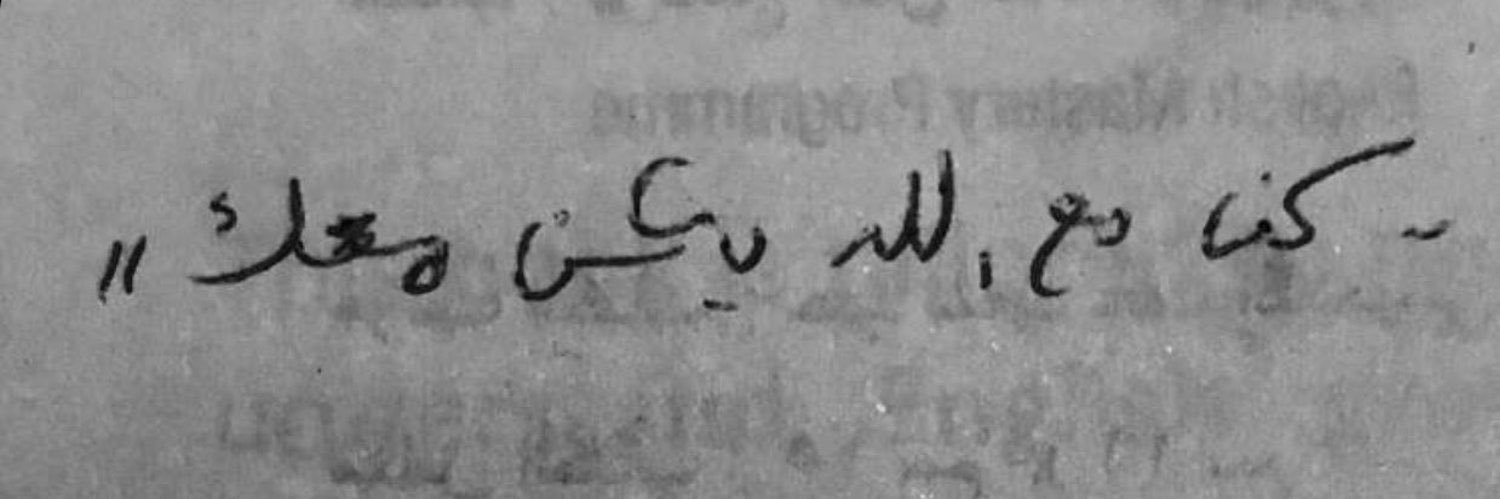 - كن مع الله يكن معك "